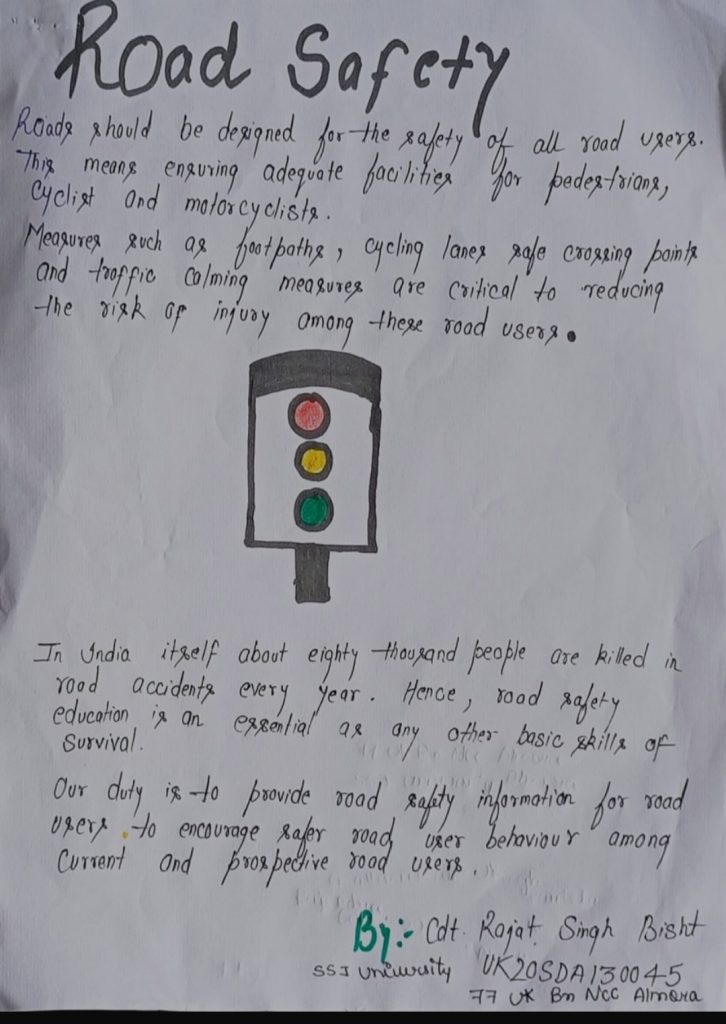 Road Safety
Roads should be designed for the safety of all road users.
This means ensuring adequate facilities for pedestrians,
Cyclist and motorcyclists.
Measures such as footpaths, cycling lanes safe crossing points
and traffic calming measures are critical to reducing
the risk of injury among these road users.
In India itself about eighty thousand people are killed in
road accidents every year. Hence, road safety
education is an essential as any other basic skills of
Survival.
Our duty is to provide road safety information for road
users. to encourage safer road user behaviour among
Current and prospective road users.
By:- Cdt. Rajat Singh Bisht
SSJ University UK20SDA130045
77 UK Bn Ncc Almora